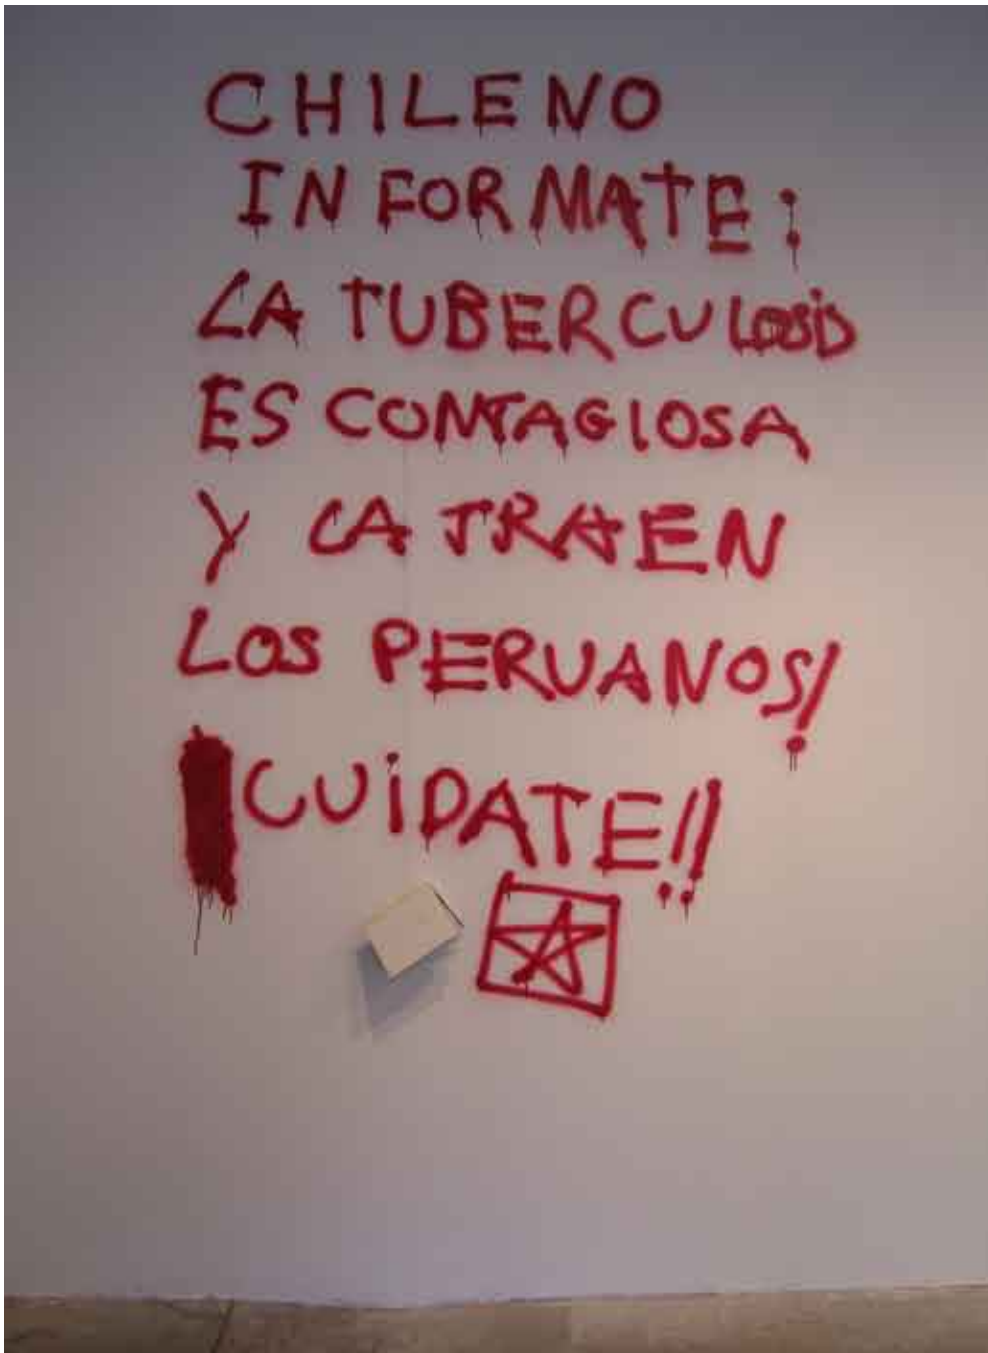 CHILENO
INFORMATE:
LA TUBERCULOSIS
ES CONTAGIOSA
Y LA TRAEN
LOS PERUANOS!
CUiDATE!!